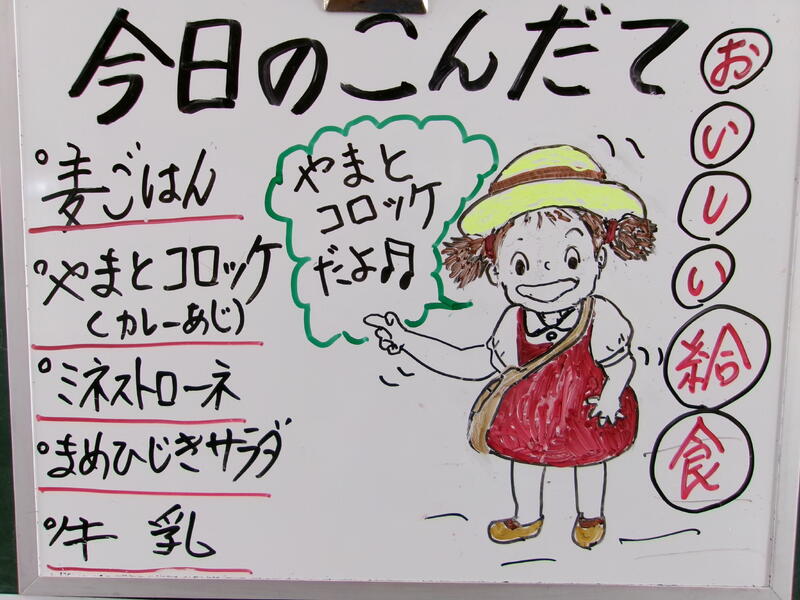 今日のこんだて
麦ごはん
やまとコロッケ
(カレーあじ)
ミネストローネ
まめひじきサラダ
牛乳
やまと
コロッケ
だよ♫
おいしい給食